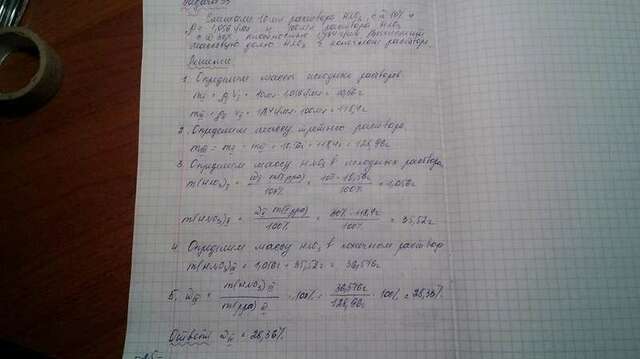 Смешали 10 мл раствора HNO₃ с ω 10% и
ρ = 1,056 г/мл и 100 мл раствора HNO₃
с ω 30% плотностью 1,184 г/мл Вычислите
массовую долю HNO₃ в конечном растворе.
Решение
1. Определим массы исходных растворов
m = ρ V = 10мл · 1,056 г/мл = 10,56г
m = ρ V = 1,184 г/мл · 100мл = 118,4г
2. Определим массу третьего раствора
m = m + m = 10,56 + 118,4г = 128,96г
3. Определим массу HNO₃ в исходных растворах
m(HNO₃) = ω m(р-ра) / 100% = 10% · 10,56г / 100% = 1,056г
m(HNO₃) = ω m(р-ра) / 100% = 30% · 118,4г / 100% = 35,52г
4. Определим массу HNO₃ в конечном растворе
m(HNO₃) = 1,056 + 35,52г = 36,576г
5. ω = m(HNO₃) / m(р-ра) · 100% = 36,576г / 128,96г · 100% = 28,36%
Ответ ω = 28,36%